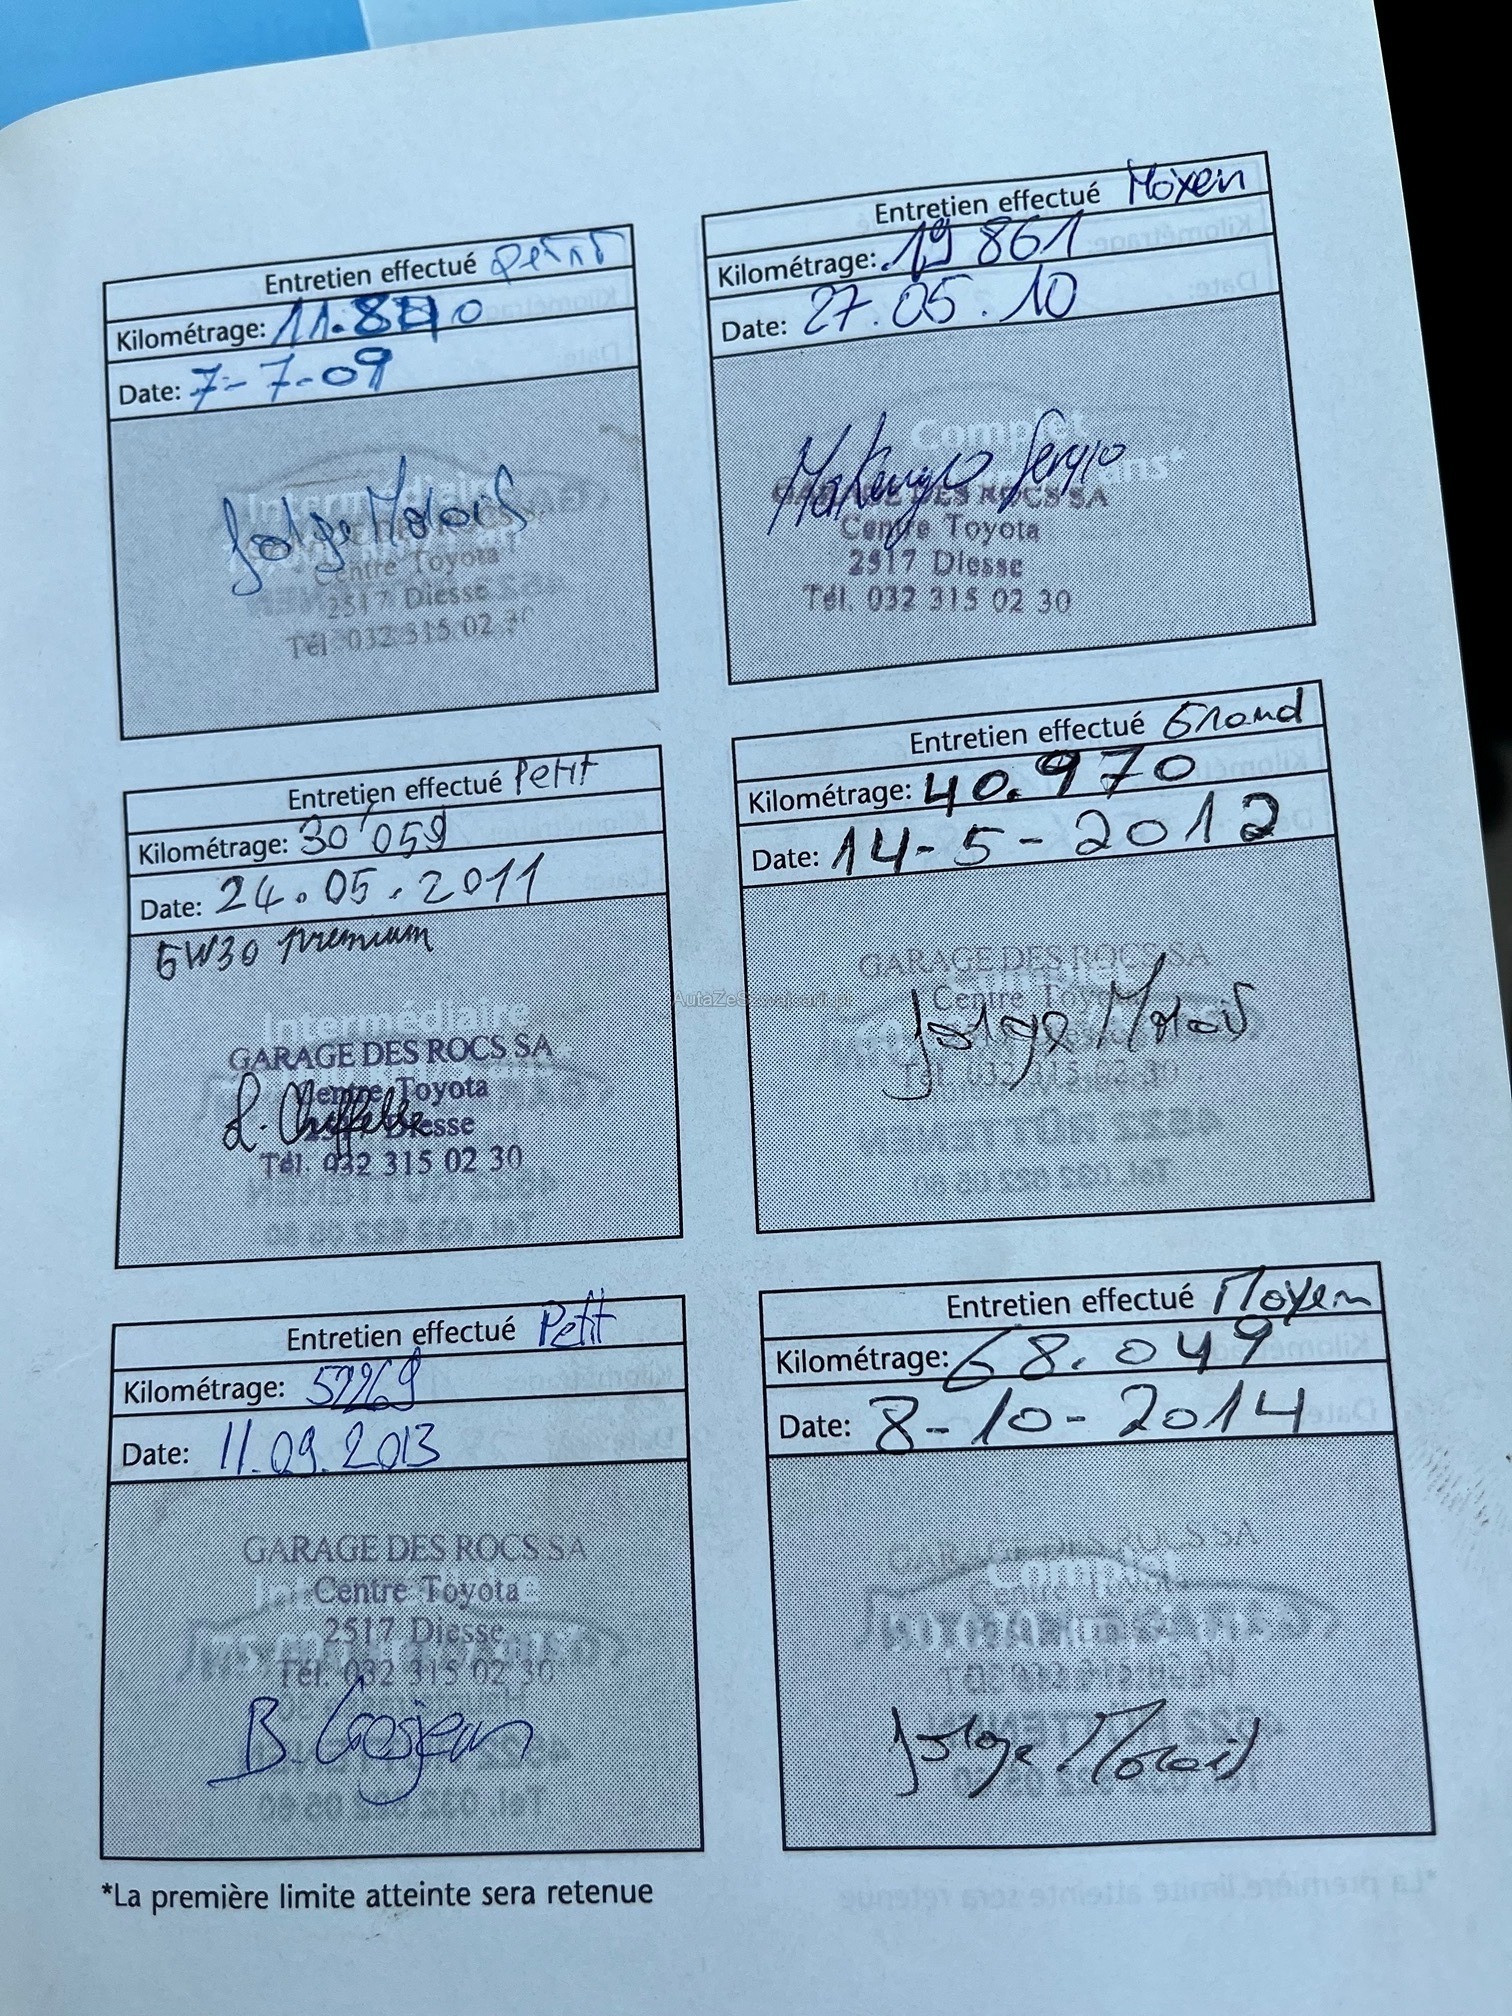 Entretien effectué Petit
Kilométrage: 11.840
Date: 7-7-09
Intermédiaire
GARAGE DES ROCS SA
Centre Toyota
2517 Diesse
Tél. 032 315 02 30
Entretien effectué Moyen
Kilométrage: 19 861
Date: 27.05.10
Complet
GARAGE DES ROCS SA
Centre Toyota
2517 Diesse
Tél. 032 315 02 30
Entretien effectué Petit
Kilométrage: 30'059
Date: 24.05.2011
5W30 premium
Intermédiaire
GARAGE DES ROCS SA
Centre Toyota
2517 Diesse
Tél. 032 315 02 30
Entretien effectué Grand
Kilométrage: 40.970
Date: 14-5-2012
GARAGE DES ROCS SA
Centre Toyota
Tél. 032 315 02 30
Entretien effectué Petit
Kilométrage: 57269
Date: 11.09.2013
GARAGE DES ROCS SA
Intermédiaire
Centre Toyota
2517 Diesse
Tél. 032 315 02 30
B. Grosjean
Entretien effectué Moyen
Kilométrage: 68.049
Date: 8-10-2014
GARAGE DES ROCS SA
Complet
Centre Toyota
*La première limite atteinte sera retenue